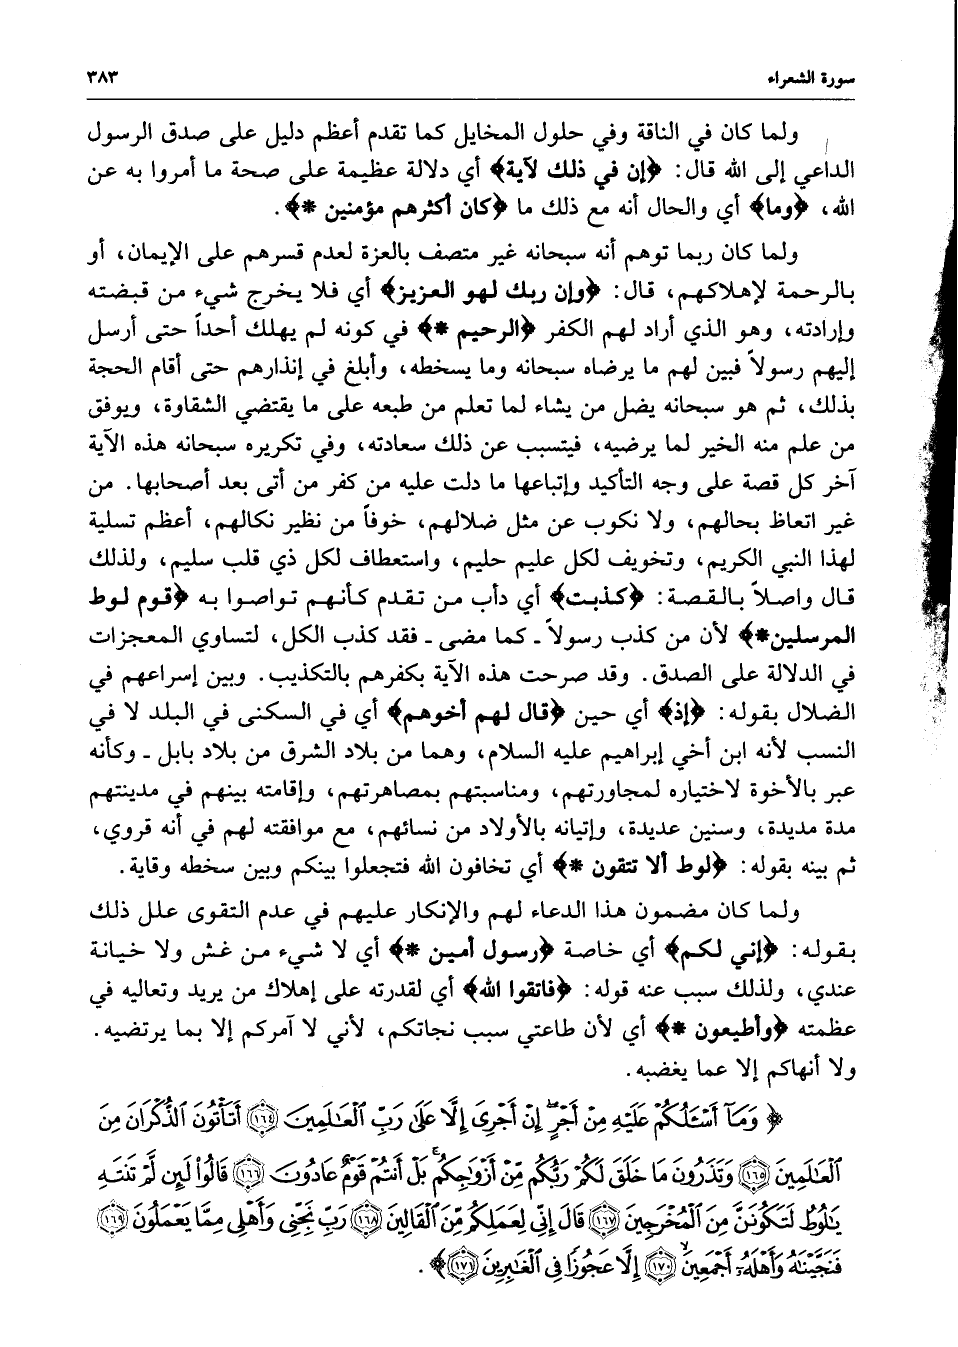 سورة الشعراء ٣٨٣
ولما كان في الناقة وفي حلول المخايل كما تقدم أعظم دليل على صدق الرسول
الداعي إلى الله قال: ﴿إن في ذلك لآية﴾ أي دلالة عظيمة على صحة ما أمروا به عن
الله، ﴿وما﴾ أي والحال أنه مع ذلك ما ﴿كان أكثرهم مؤمنين *﴾.
ولما كان ربما توهم أنه سبحانه غير متصف بالعزة لعدم قسرهم على الإيمان، أو
بالرحمة لإهلاكهم، قال: ﴿وإن ربك لهو العزيز﴾ أي فلا يخرج شيء من قبضته
وإرادته، وهو الذي أراد لهم الكفر ﴿الرحيم *﴾ في كونه لم يهلك أحداً حتى أرسل
إليهم رسولاً فبين لهم ما يرضاه سبحانه وما يسخطه، وأبلغ في إنذارهم حتى أقام الحجة
بذلك، ثم هو سبحانه يضل من يشاء لما تعلم من طبعه على ما يقتضي الشقاوة، ويوفق
من علم منه الخير لما يرضيه، فيتسبب عن ذلك سعادته، وفي تكريره سبحانه هذه الآية
آخر كل قصة على وجه التأكيد وإتباعها ما دلت عليه من كفر من أتى بعد أصحابها. من
غير اتعاظ بحالهم، ولا نكوب عن مثل ضلالهم، خوفاً من نظير نكالهم، أعظم تسلية
لهذا النبي الكريم، وتخويف لكل عليم حليم، واستعطاف لكل ذي قلب سليم، ولذلك
قال واصلاً بالقصة: ﴿كذبت﴾ أي دأب من تقدم كأنهم تواصوا به ﴿قوم لوط
المرسلين*﴾ لأن من كذب رسولاً ـ كما مضى ـ فقد كذب الكل، لتساوي المعجزات
في الدلالة على الصدق. وقد صرحت هذه الآية بكفرهم بالتكذيب. وبين إسراعهم في
الضلال بقوله: ﴿إذ﴾ أي حين ﴿قال لهم أخوهم﴾ أي في السكنى في البلد لا في
النسب لأنه ابن أخي إبراهيم عليه السلام، وهما من بلاد الشرق من بلاد بابل ـ وكأنه
عبر بالأخوة لاختياره لمجاورتهم، ومناسبتهم بمصاهرتهم، وإقامته بينهم في مدينتهم
مدة مديدة، وسنين عديدة، وإتيانه بالأولاد من نسائهم، مع موافقته لهم في أنه قروي،
ثم بينه بقوله: ﴿لوط ألا تتقون *﴾ أي تخافون الله فتجعلوا بينكم وبين سخطه وقاية.
ولما كان مضمون هذا الدعاء لهم والإنكار عليهم في عدم التقوى علل ذلك
بقوله: ﴿إني لكم﴾ أي خاصة ﴿رسول أمين *﴾ أي لا شيء من غش ولا خيانة
عندي، ولذلك سبب عنه قوله: ﴿فاتقوا الله﴾ أي لقدرته على إهلاك من يريد وتعاليه في
عظمته ﴿وأطيعون *﴾ أي لأن طاعتي سبب نجاتكم، لأني لا آمركم إلا بما يرتضيه.
ولا أنهاكم إلا عما يغضبه.
﴿وَمَآ أَسْـَٔلُكُمْ عَلَيْهِ مِنْ أَجْرٍ ۖ إِنْ أَجْرِىَ إِلَّا عَلَىٰ رَبِّ ٱلْعَـٰلَمِينَ ١٦٤ أَتَأْتُونَ ٱلذُّكْرَانَ مِنَ
ٱلْعَـٰلَمِينَ ١٦٥ وَتَذَرُونَ مَا خَلَقَ لَكُمْ رَبُّكُم مِّنْ أَزْوَٰجِكُم ۚ بَلْ أَنتُمْ قَوْمٌ عَادُونَ ١٦٦ قَالُوا۟ لَئِن لَّمْ تَنتَهِ
يَـٰلُوطُ لَتَكُونَنَّ مِنَ ٱلْمُخْرَجِينَ ١٦٧ قَالَ إِنِّى لِعَمَلِكُم مِّنَ ٱلْقَالِينَ ١٦٨ رَبِّ نَجِّنِى وَأَهْلِى مِمَّا يَعْمَلُونَ ١٦٩
فَنَجَّيْنَـٰهُ وَأَهْلَهُۥٓ أَجْمَعِينَ ١٧٠ إِلَّا عَجُوزًا فِى ٱلْغَـٰبِرِينَ ١٧١﴾.